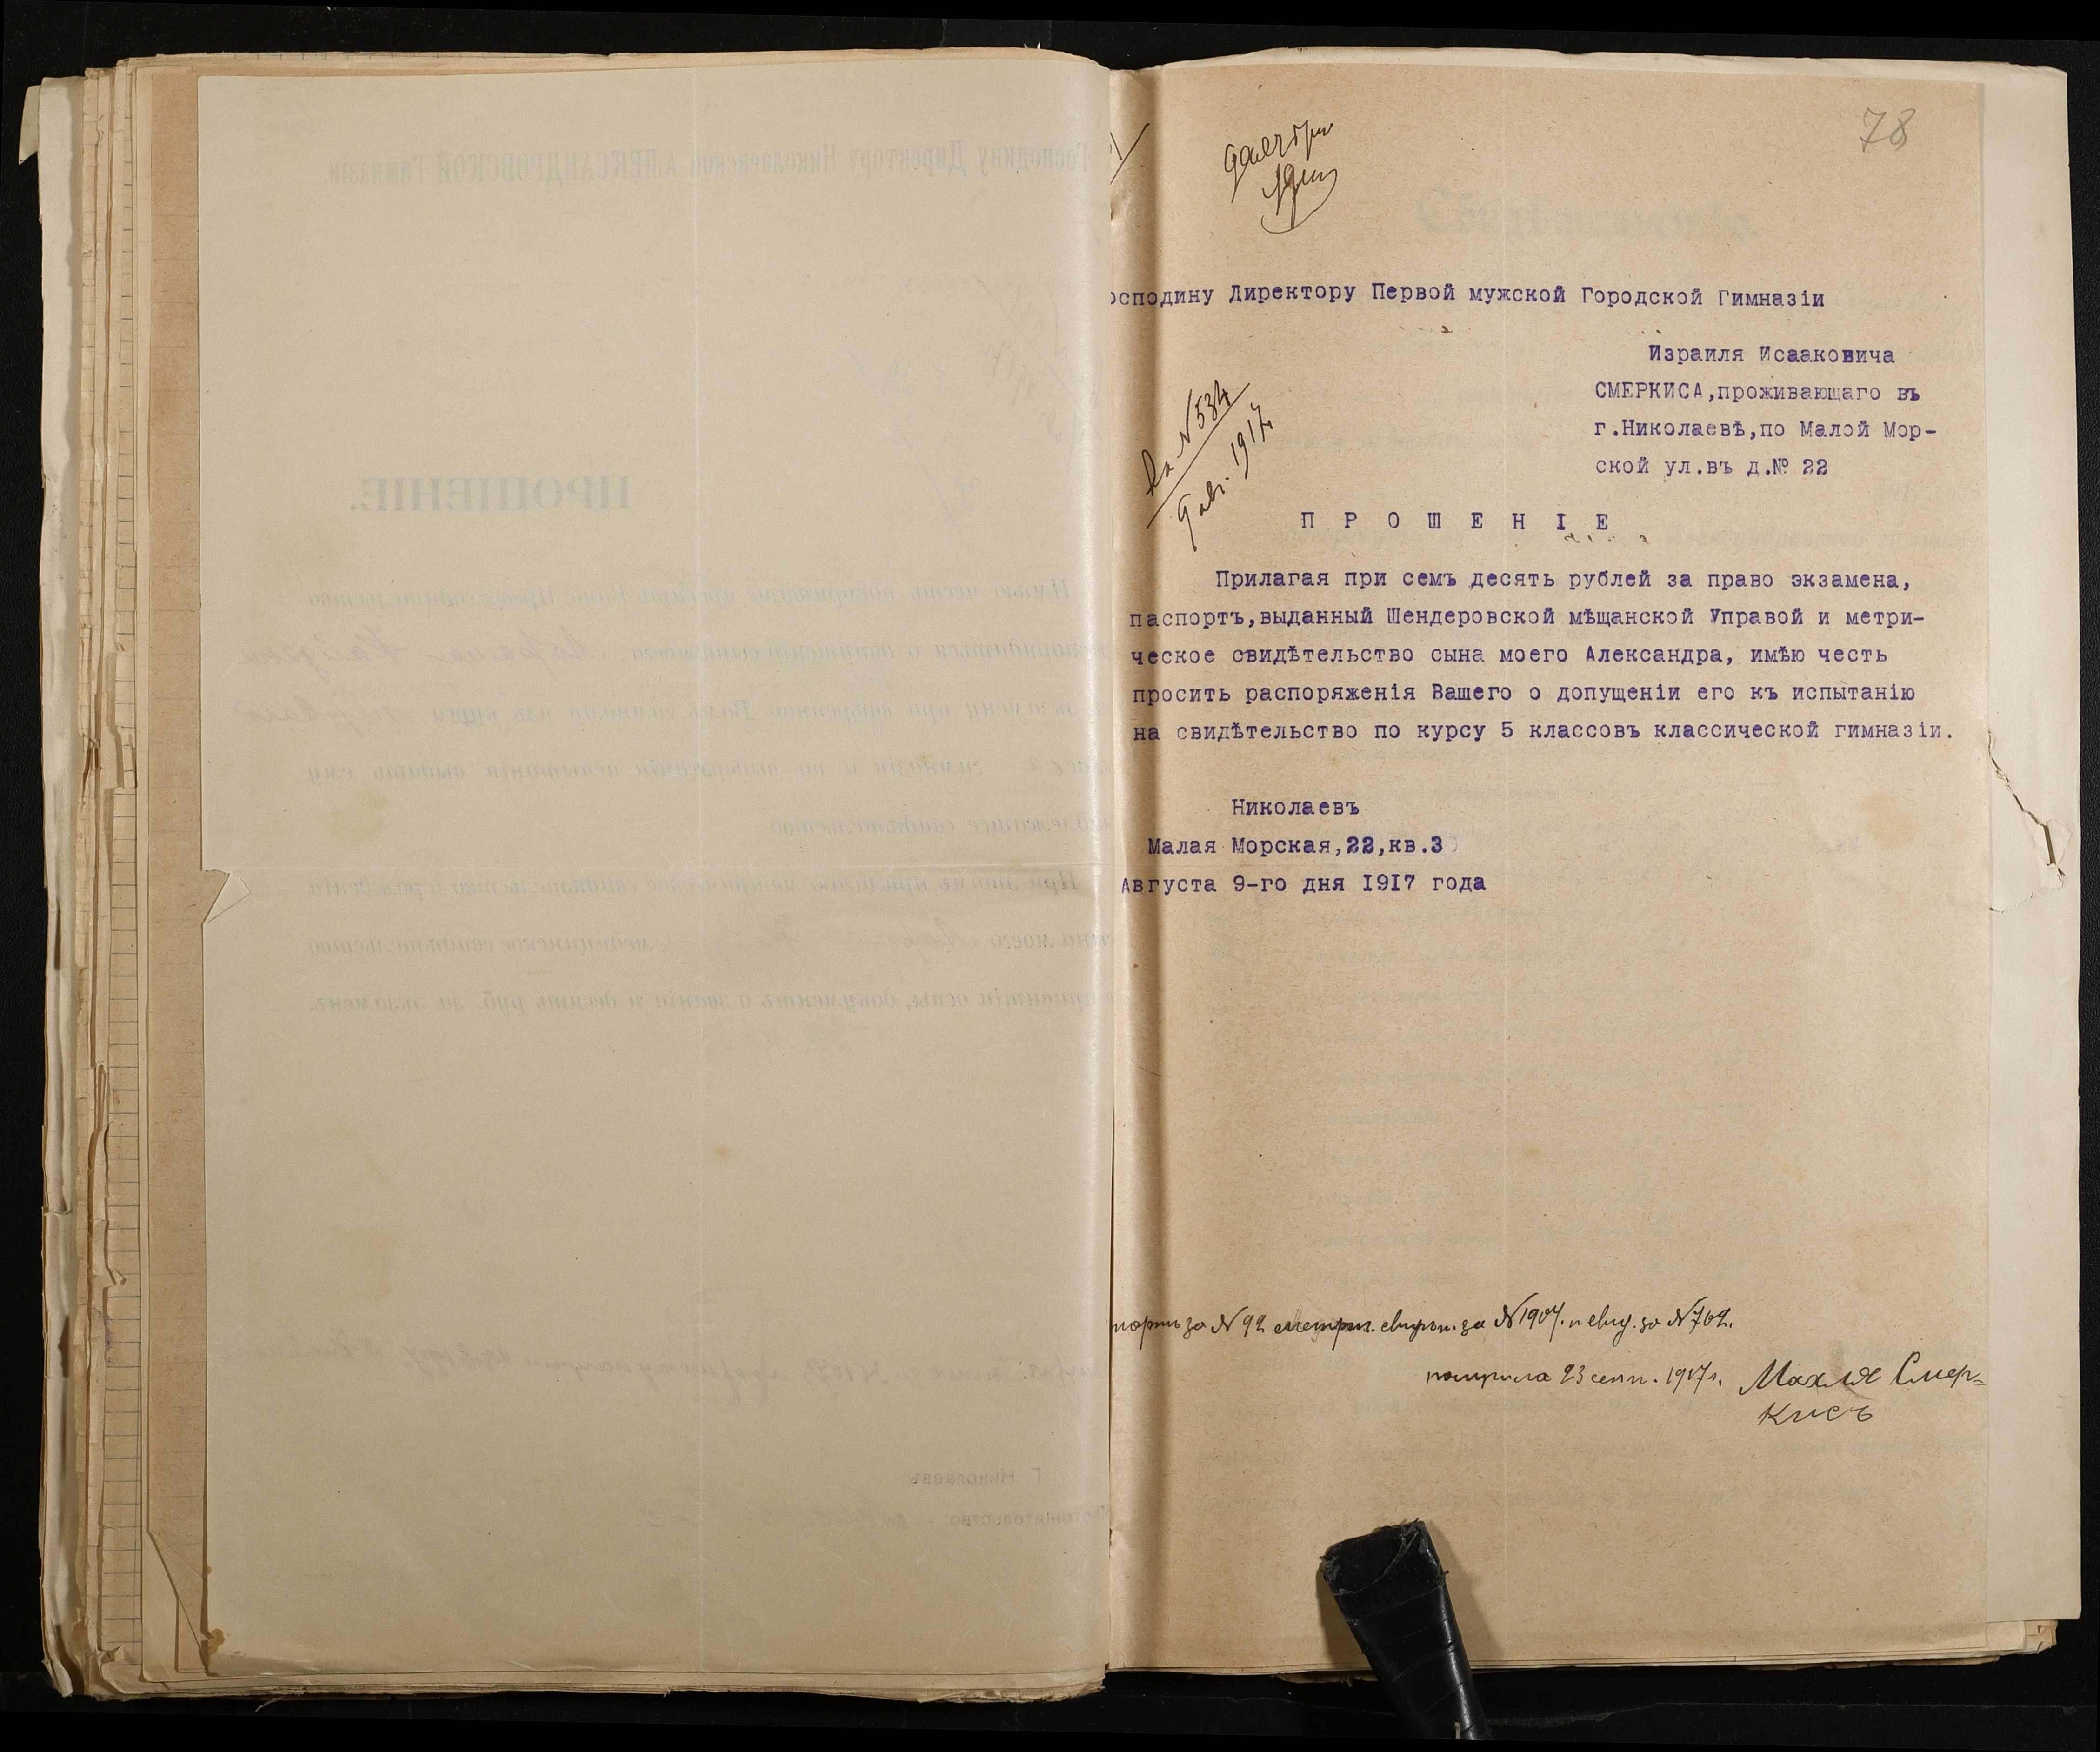 78
осподину Директору Первой мужской Городской Гимназіи
Израиля Исааковича
СМЕРКИСА,проживающаго въ
г.Николаевѣ,по Малой Мор-
ской ул.въ д.№ 22
№ 534
1917
П Р О Ш Е Н I Е
Прилагая при семъ десять рублей за право экзамена,
паспортъ,выданный Шендеровской мѣщанской Управой и метри-
ческое свидѣтельство сына моего Александра, имѣю честь
просить распоряженія Вашего о допущеніи его къ испытанію
на свидѣтельство по курсу 5 классовъ классической гимназіи.
Николаевъ
Малая Морская,22,кв.3
Августа 9-го дня I9I7 года
портъ за № 92 метрич. свид. за № 1907. и свид. за № 762.
получила 23 сент. 1917 г. Махля Смер-
кисъ